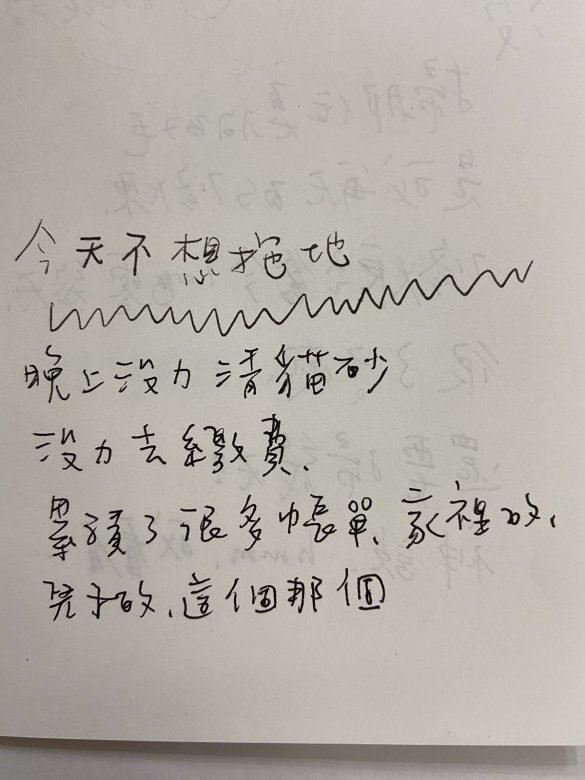 今天不想拖地
晚上沒力清貓砂
沒力去繳費、
累積了很多帳單、家裡的、
兒子的、這個那個